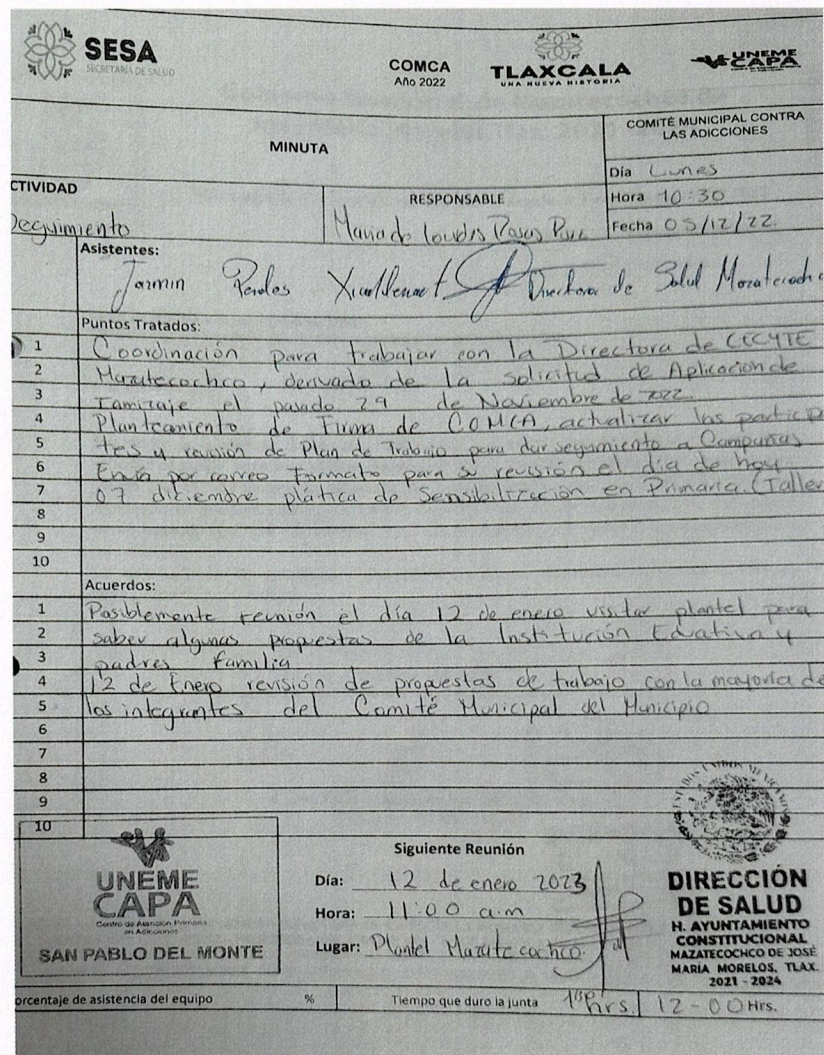 SESA
SECRETARÍA DE SALUD
COMCA
Año 2022
TLAXCALA
UNA NUEVA HISTORIA
UNEME
CAPA
MINUTA
COMITÉ MUNICIPAL CONTRA
LAS ADICCIONES
Día Lunes
CTIVIDAD
RESPONSABLE
Hora 10:30
Seguimiento
Maria de lourdes Rosas
Fecha 05/12/22
Asistentes:
Jazmin Perales Directora de Salud Mazatecochc
Puntos Tratados:
1 Coordinación para trabajar con la Directora de CECYTE
2 Mazatecochco, derivado de la solicitud de Aplicacion de
3 Tamizaje el pasado 29 de Noviembre de 2022
4 Planteamiento de Firma de COMCA, actualizar los particip
5 tes y revisión de Plan de Trabajo para dar seguimiento a Campañas
6 Envía por correo Formato para su revisión el día de hoy
7 07 diciembre plática de Sensibilización en Primaria (Taller
8
9
10
Acuerdos:
1 Posiblemente reunión el día 12 de enero visitar plantel para
2 saber algunas propuestas de la Institución Edvativa y
3 padres familia
4 12 de Enero revisión de propuestas de trabajo con la mayoría de
5 los integrantes del Comité Municipal del Municipio
6
7
8
9
10
ESTADOS UNIDOS MEXICANOS
UNEME
CAPA
Centro de Atención Primaria
en Adicciones
SAN PABLO DEL MONTE
Siguiente Reunión
Día: 12 de enero 2023
Hora: 11:00 a.m
Lugar: Plantel Mazatecochco.
DIRECCIÓN
DE SALUD
H. AYUNTAMIENTO
CONSTITUCIONAL
MAZATECOCHCO DE JOSÉ
MARÍA MORELOS, TLAX.
2021 - 2024
orcentaje de asistencia del equipo %
Tiempo que duro la junta hrs. 12-00 Hrs.